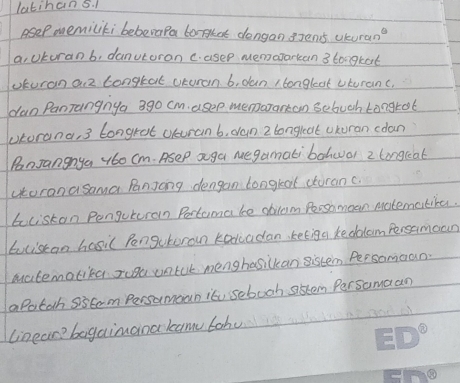 latihan 5.1
Asep memiliki beberapa tongkat dengan jenis ukuran
a, ukuran b, dan ukuran c. asep memajarkan 3 tongkat
ukuran a, 2 tongkat ukuran b, dan 1 tongkat ukuran c,
dan Panjangnya 390 cm. asep memajarkan sebuah tongkat
ukuran a, 3 tongkat ukuran b, dan 2 tongkat ukuran c dan
Panjangnya 460 cm. Asep juga megamati bahwa 2 tongkat
ukuran a sama Panjang dengan tongkat ukuran c.
tuliskan Pengukuran Pertama ke dalam Persamaan Matematika.
tuliskan hasil Pengukuran kedua dan ketiga ke dalam Persamaan
matematika juga untuk menghasilkan sistem Persamaan.
apakah sistem Persamaan itu sebuah sistem Persamaan
Linear? bagaimana kamu tahu
ED®
ED®